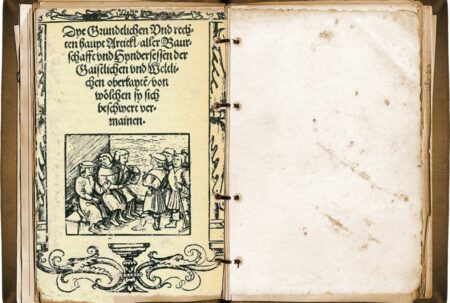 Dye Grundtlichen Vnd rech-
ten haupt Artickl/aller Baur-
schafft vnd Hyndersessen der
Gaistlichen vnd Weltli-
chen oberkayté/von
wölchen sy sich
beschwert ver-
mainen.